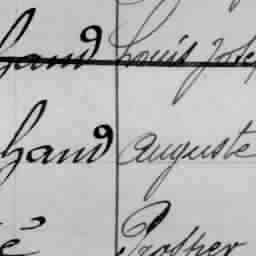 hand Louis Jose
hand Auguste
é Prosper